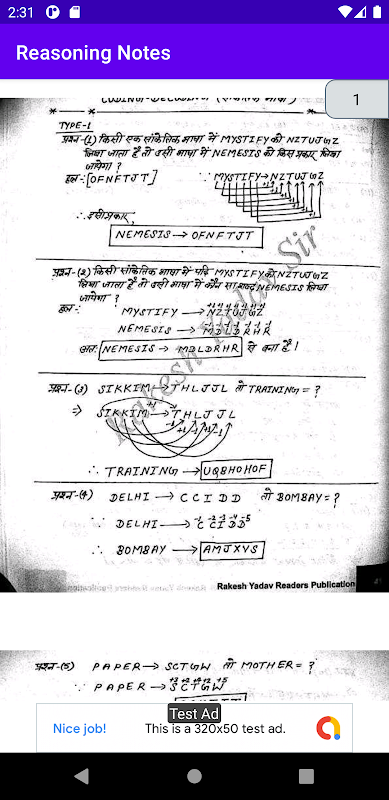 2:31
Reasoning Notes
1
TYPE-1
प्रश्न-(1) किसी एक सांकेतिक भाषा में MYSTIFY को NZTUJGZ
लिखा जाता है तो उसी भाषा में NEMESIS को किस प्रकार लिखा
जायेगा ?
हल:-[OFNFTJT] ∵ MYSTIFY→NZTUJGZ
∴ इसी प्रकार,
NEMESIS → OFNFTJT
प्रश्न-(2) किसी सांकेतिक भाषा में यदि MYSTIFY को NZTUJGZ
लिखा जाता है तो उसी भाषा में कौन सा शब्द NEMESIS लिखा
जायेगा ?
हल:- MYSTIFY → NZTUJGZ
NEMESIS → MDLDRHR
अतः NEMESIS → MDLDRHR से बना है।
प्रश्न-(3) SIKKIM → THLJJL तो TRAINING = ?
⇒ SIKKIM → THLJJL
∴ TRAINING → UQBHOHOF
प्रश्न-(4) DELHI → CCIDD तो BOMBAY = ?
∵ DELHI → CCIDD
-1 -2 -3 -4 -5
∴ BOMBAY → AMJXVS
Rakesh Yadav Sir
Rakesh Yadav Readers Publication
प्रश्न-(5) PAPER → SCTGW तो MOTHER = ?
∵ PAPER → SCTGW
Test Ad
Nice job! This is a 320x50 test ad.